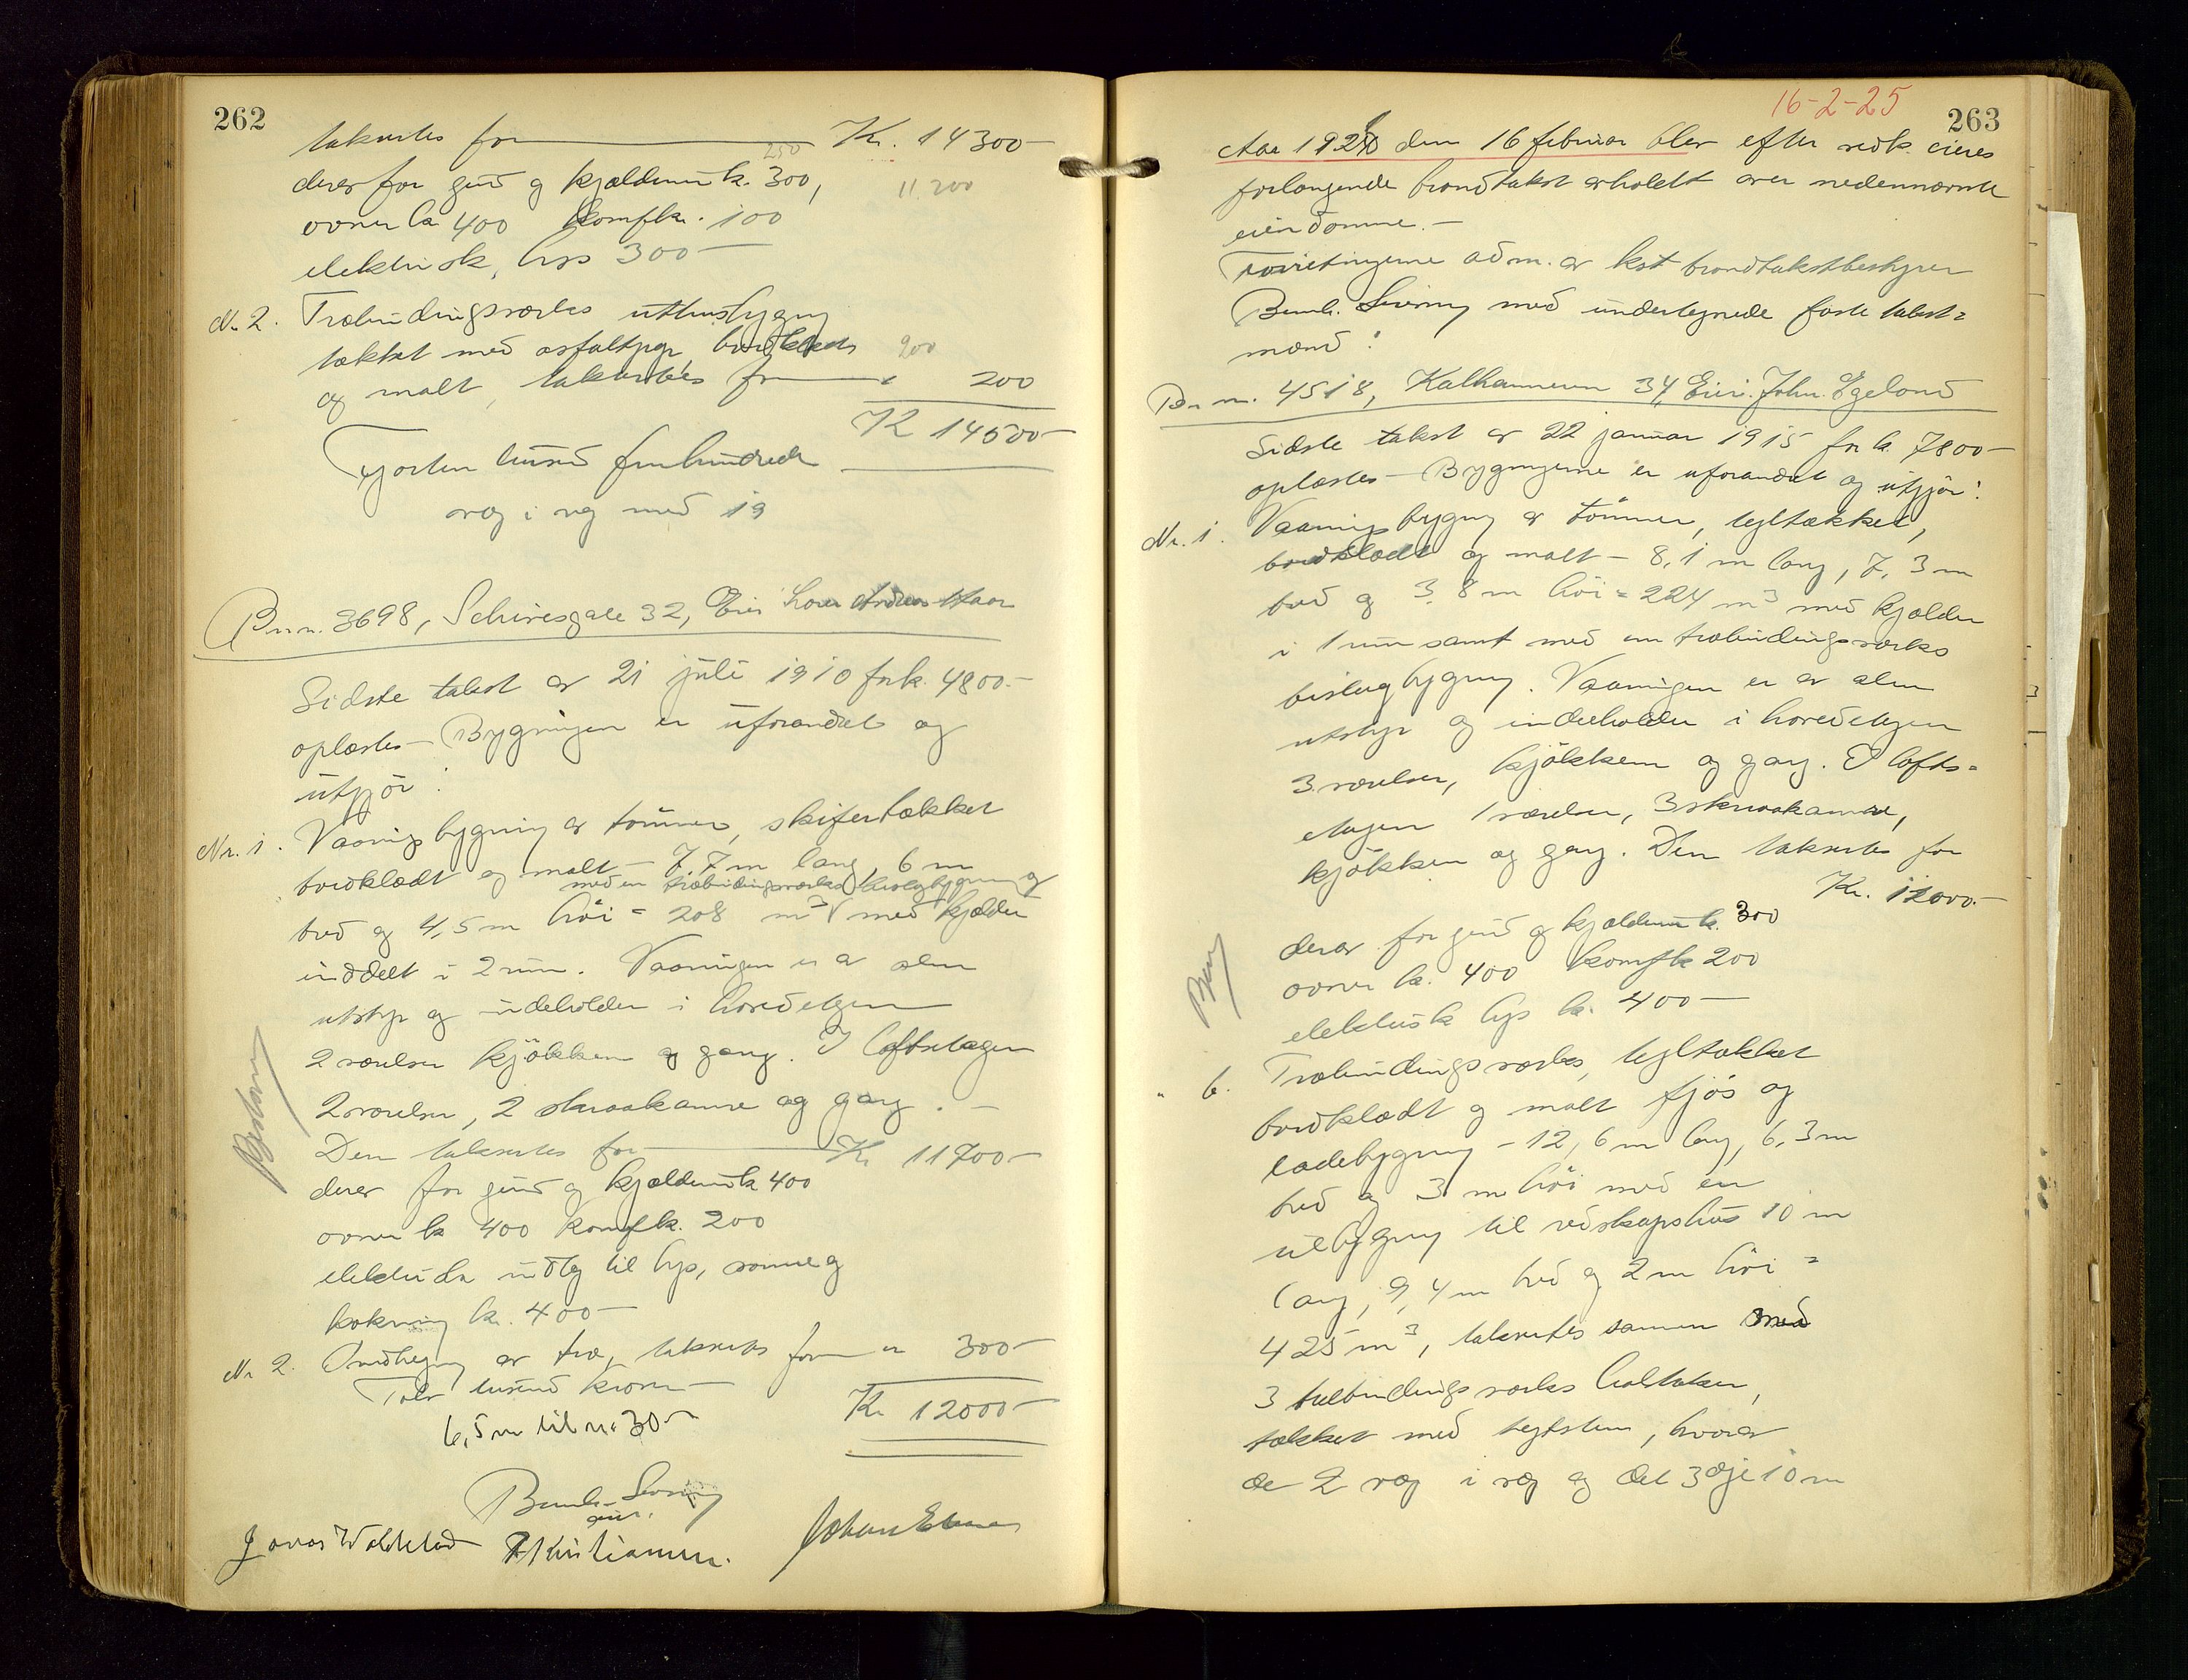 262
takseres for Kr. 14300-
250
derav for grund og kjældermur k. 300,
11.200
ovner kr 400 komf kr. 100
elektrisk lys 300-
Nr 2. Træbindingsverks uthusbygning
tækket med asfaltpap, bordklædt
200
og malt, takseres for " 200
Kr 14500-
Fjorten tusind femhundrede
væg i væg med 19
Br.nr. 3698, Schivesgate 32, Eier
Sidste takst av 21 juli 1910 for k. 4800.-
oplæstes - Bygningen er uforandret og
utgjør:
Nr. 1. Vaaningsbygning av tømmer, skifertækket
bordklædt og malt - 7,7 m lang, 6 m
med en træbindingsverks bislagbygning og
bred og 4,5 m høi = 208 m3 med kjælder
inddelt i 2 rum. Vaaningen er av alm
utstyr og indeholder i hovedetagen
2 værelser kjøkken og gang. I loftsetagen
2 værelser, 2 skraakamre og gang. -
Den takseres for Kr 11700-
derav for grund og kjældermur k 400
ovner k 400 komf k. 200
elektrisk indlæg til lys, varme og
kokning kr. 400-
Nr 2. av træ, takseres for " 300-
Tolv tusind kroner-
Kr 12000-
6,5 m til nr 30-
Jonas Waldeland T Kristiansen.
263
16-2-25
Aar 1925 den 16 februar blev efter vedk. eieres
forlangende brandtakst avholdt over nedennævnte
eiendomme.-
Forretningerne adm. av kst brandtakstbestyrer
med undertegnede faste takst=
mænd:
Br. nr. 4518, Kalhammeren 34, Eier: John Egeland
Sidste takst av 22 januar 1915 for k. 7800-
oplæstes - Bygningerne er uforandret og utgjør:
Nr. 1. Vaaningsbygning av tømmer, tegltækket,
bordklædt og malt - 8,1 m lang, 7,3 m
bred og 3,8 m høi = 224 m3 med kjælder
i 1 rum samt med en træbindingsverks
bislagbygning. Vaaningen er av alm
utstyr og indeholder i hovedetagen
3 værelser, kjøkken og gang. I lofts=
etagen 1 værelse, 3 skraakamre,
kjøkken og gang. Den takseres for
Kr. 12000.-
derav for grund og kjældermur k. 300
ovner kr. 400 komf k 200
elektrisk lys kr. 400-
" 6. Træbindingsverks, tegltækket
bordklædt og malt fjøs og
ladebygning - 12,6 m lang, 6,3 m
bred og 3 m høi med en
utbygning til redskapshus 10 m
lang, 9,4 m bred og 2 m høi =
425 m3, takseres sammen med
3 træbindingsverks
tækket med teglsten, hvorav
de 2 væg i væg og det 3dje 10 m